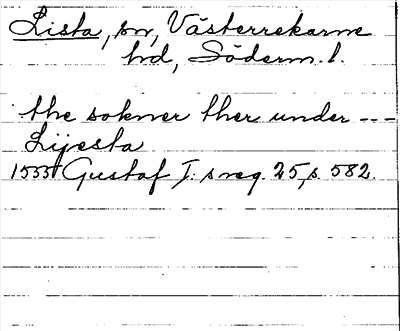 Lista, sn, Västerrekarne
hd, Söderm. l.
the sokner ther under ---
Lijesta
1555 Gustaf I:s reg. 25, s. 582.